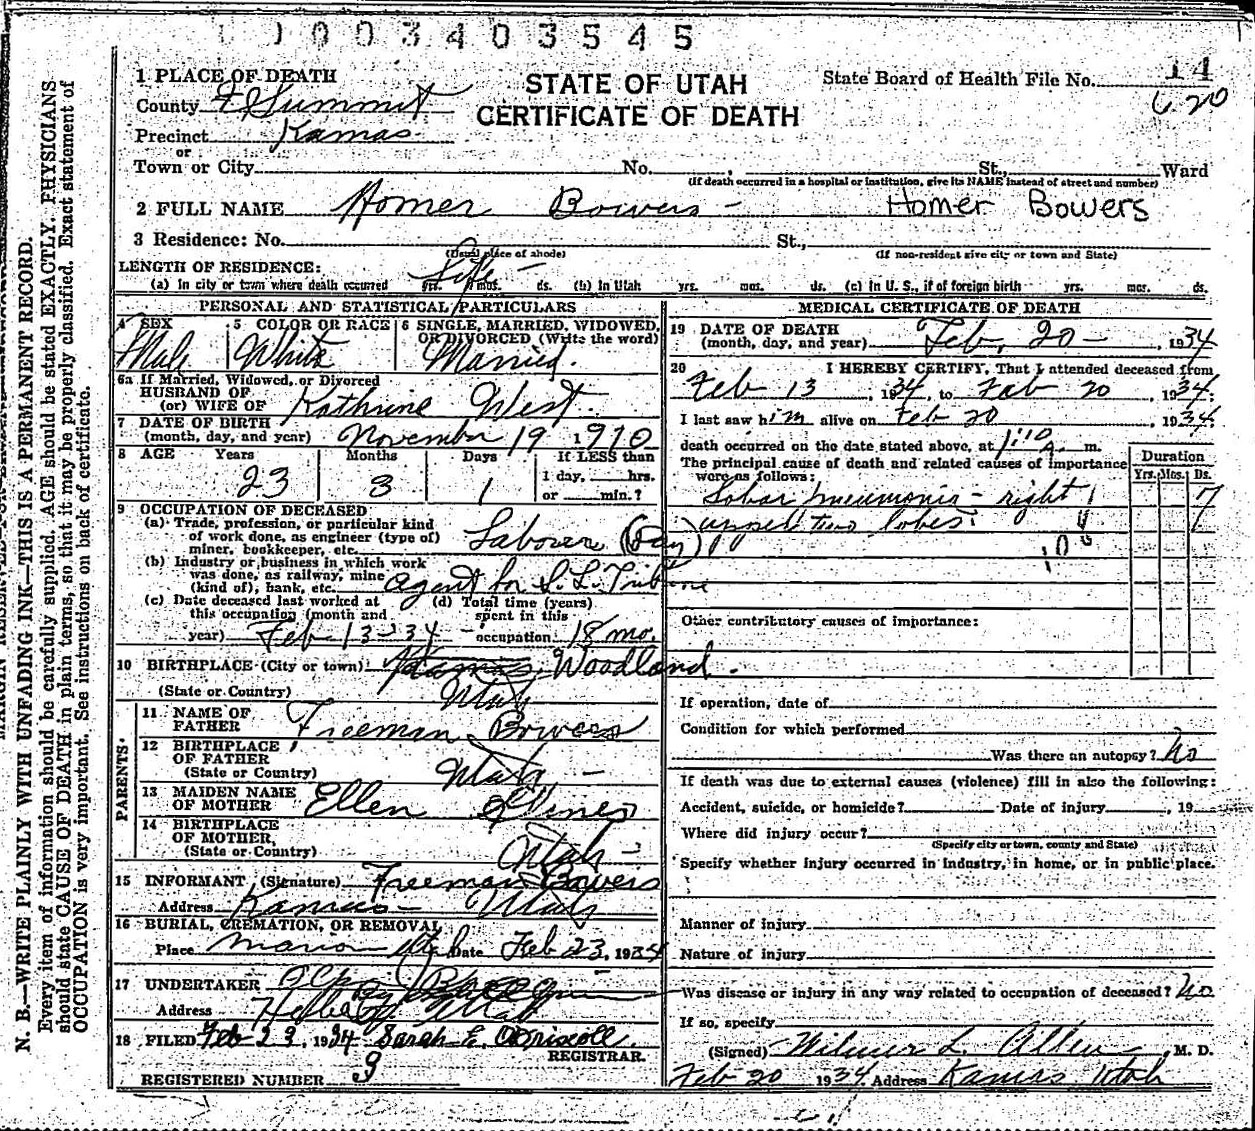 1003403545
1 PLACE OF DEATH
STATE OF UTAH
CERTIFICATE OF DEATH
State Board of Health File No. 14
620
County Summit
Precinct Kamas
or
Town or City No. , St., Ward
(If death occurred in a hospital or institution, give its NAME instead of street and number)
2 FULL NAME Homer Bowers - Homer Bowers
3 Residence: No. St.,
(Usual place of abode) (If non-resident give city or town and State)
LENGTH OF RESIDENCE: Life -
(a) In city or town where death occurred yrs. mos. ds. (b) In Utah yrs. mos. ds. (c) In U. S., if of foreign birth yrs. mos. ds.
PERSONAL AND STATISTICAL PARTICULARS
4 SEX Male
5 COLOR OR RACE White
6 SINGLE, MARRIED, WIDOWED, OR DIVORCED (Write the word) Married.
6a If Married, Widowed, or Divorced
HUSBAND OF
(or) WIFE OF Kathrine West.
7 DATE OF BIRTH
(month, day, and year) November 19 1910
8 AGE Years Months Days If LESS than
1 day, hrs.
23 3 1 or min.?
9 OCCUPATION OF DECEASED
(a) Trade, profession, or particular kind
of work done, as engineer (type of)
miner, bookkeeper, etc. Laborer (Day)
(b) Industry or business in which work
was done, as railway, mine
(kind of), bank, etc. agent for S. L. Tribune
(c) Date deceased last worked at
this occupation (month and
year) Feb 13-34 -
(d) Total time (years)
spent in this
occupation 18 mo.
10 BIRTHPLACE (City or town) Kamas Woodland.
(State or Country) Utah
PARENTS
11 NAME OF
FATHER Freeman Bowers
12 BIRTHPLACE
OF FATHER
(State or Country) Utah -
13 MAIDEN NAME
OF MOTHER Ellen
14 BIRTHPLACE
OF MOTHER,
(State or Country) Utah -
15 INFORMANT (Signature) Freeman Bowers
Address Kamas - Utah
16 BURIAL, CREMATION, OR REMOVAL
Place Marion Utah Date Feb 23, 1934
17 UNDERTAKER
Address Heber Utah
18 FILED Feb 23, 1934 Sarah E. O'Driscoll.
REGISTRAR.
REGISTERED NUMBER 9
MEDICAL CERTIFICATE OF DEATH
19 DATE OF DEATH
(month, day, and year) Feb, 20 - , 1934
20 I HEREBY CERTIFY, That I attended deceased from
Feb 13 , 1934, to Feb 20 , 1934;
I last saw him alive on Feb 20 , 1934;
death occurred on the date stated above, at 1:10 A. m.
The principal cause of death and related causes of importance
were as follows:
Duration
Yrs. Mos. Ds.
Lobar pneumonia - right 7
upper two lobes.
Other contributory causes of importance:
If operation, date of
Condition for which performed
Was there an autopsy? No
If death was due to external causes (violence) fill in also the following:
Accident, suicide, or homicide? Date of injury , 19
Where did injury occur?
(Specify city or town, county and State)
Specify whether injury occurred in industry, in home, or in public place.
Manner of injury
Nature of injury
Was disease or injury in any way related to occupation of deceased? No
If so, specify
(Signed) Wilmer L. Allen , M. D.
Feb 20 1934 Address Kamas Utah
N. B.—WRITE PLAINLY WITH UNFADING INK—THIS IS A PERMANENT RECORD.
Every item of information should be carefully supplied. AGE should be stated EXACTLY. PHYSICIANS
should state CAUSE OF DEATH in plain terms, so that it may be properly classified. Exact statement of
OCCUPATION is very important. See instructions on back of certificate.